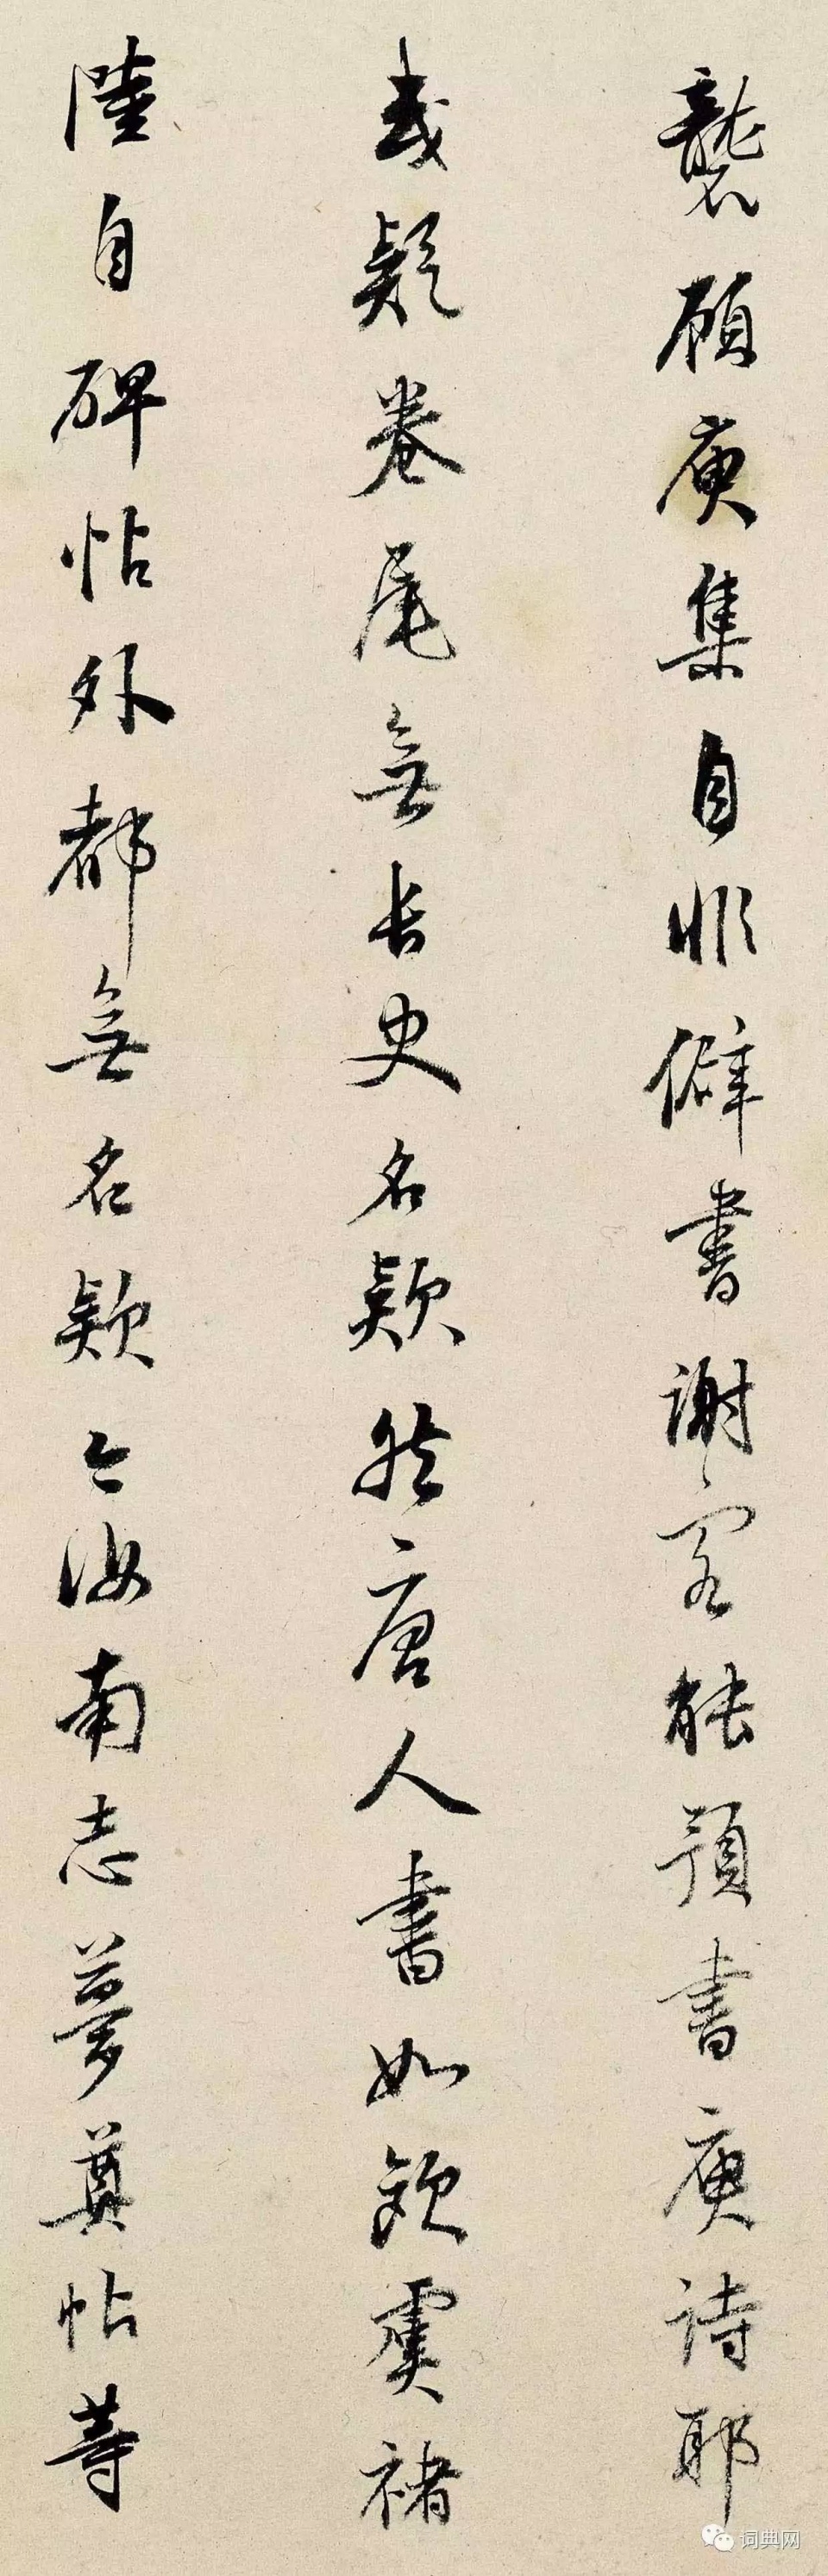 襲顧庾集自非僻書謝客能預書庾詩耶
或疑卷尾無長史名款然唐人書如歐虞褚
陸自碑帖外都無名款今汝南志夢奠帖等
词典网